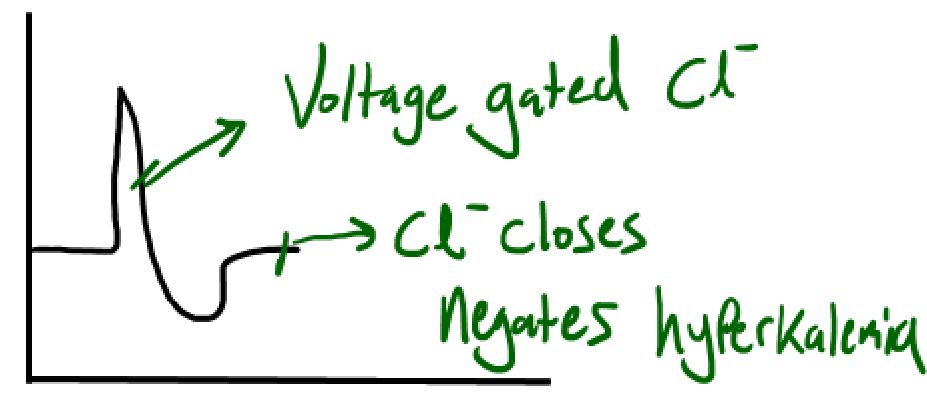 Voltage gated Cl⁻
Cl⁻ closes
Negates hyperkalemia